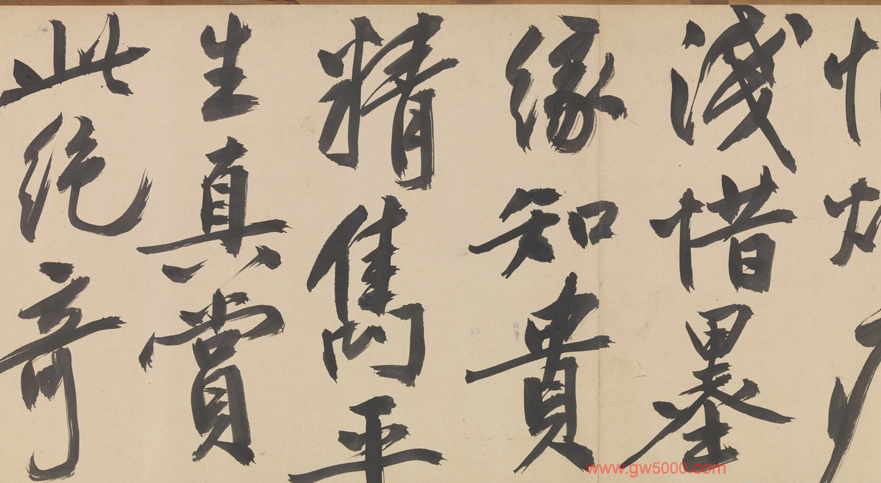 淺惜墨
緣知貴
精雋平
生真賞
此絕奇
www.gw5000.com